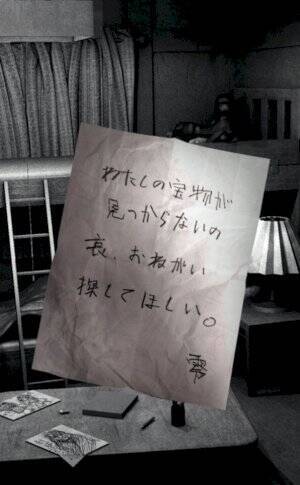 わたしの宝物が
見つからないの
哀、おねがい
探してほしい。
零